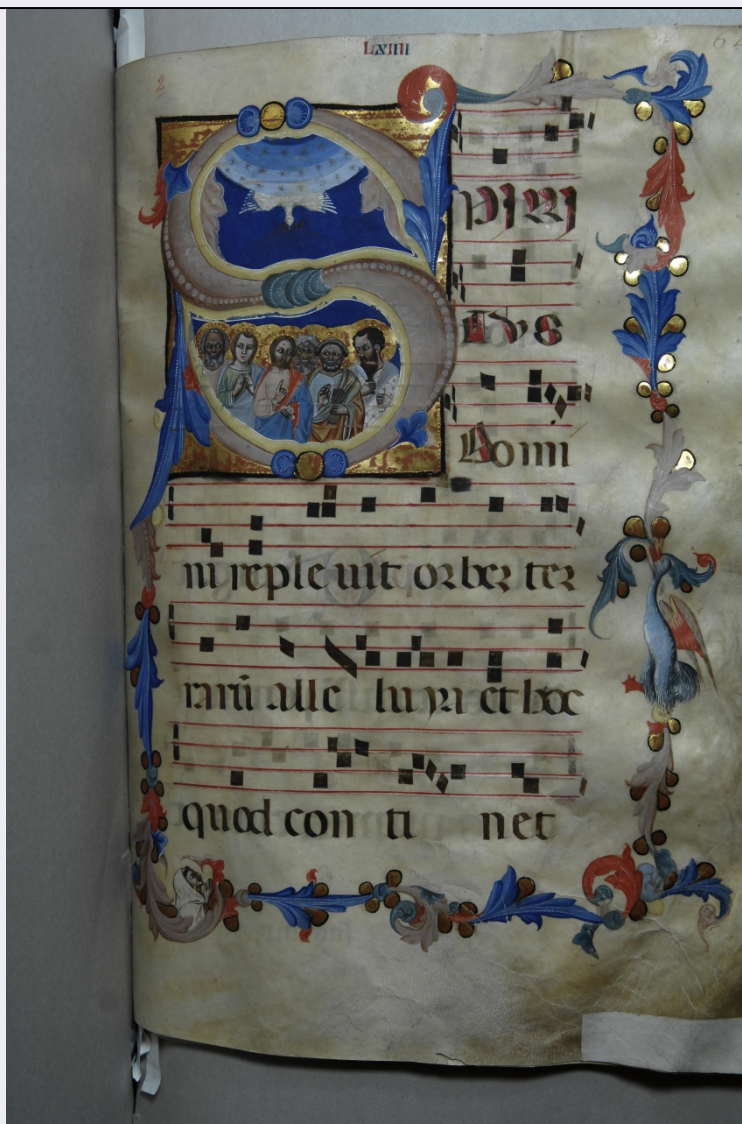 LXIIII
2
64
SPIRI
TUS
Domi
ni reple uit orbez ter
rarū alle luya et hoc
quod con ti net